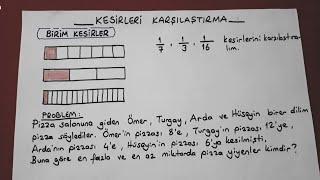 KESİRLERİ KARŞILAŞTIRMA
BİRİM KESİRLER
1/7 , 1/3 , 1/16 kesirlerini karşılaştıra-
lım.
PROBLEM:
Pizza salonuna giden Ömer, Turgay, Arda ve Hüseyin birer dilim
pizza söylediler. Ömer'in pizzası 8'e, Turgay'ın pizzası 12'ye,
Arda'nın pizzası 4'e, Hüseyin'in pizzası 6'ya kesilmişti.
Buna göre en fazla ve en az miktarda pizza yiyenler kimdir?